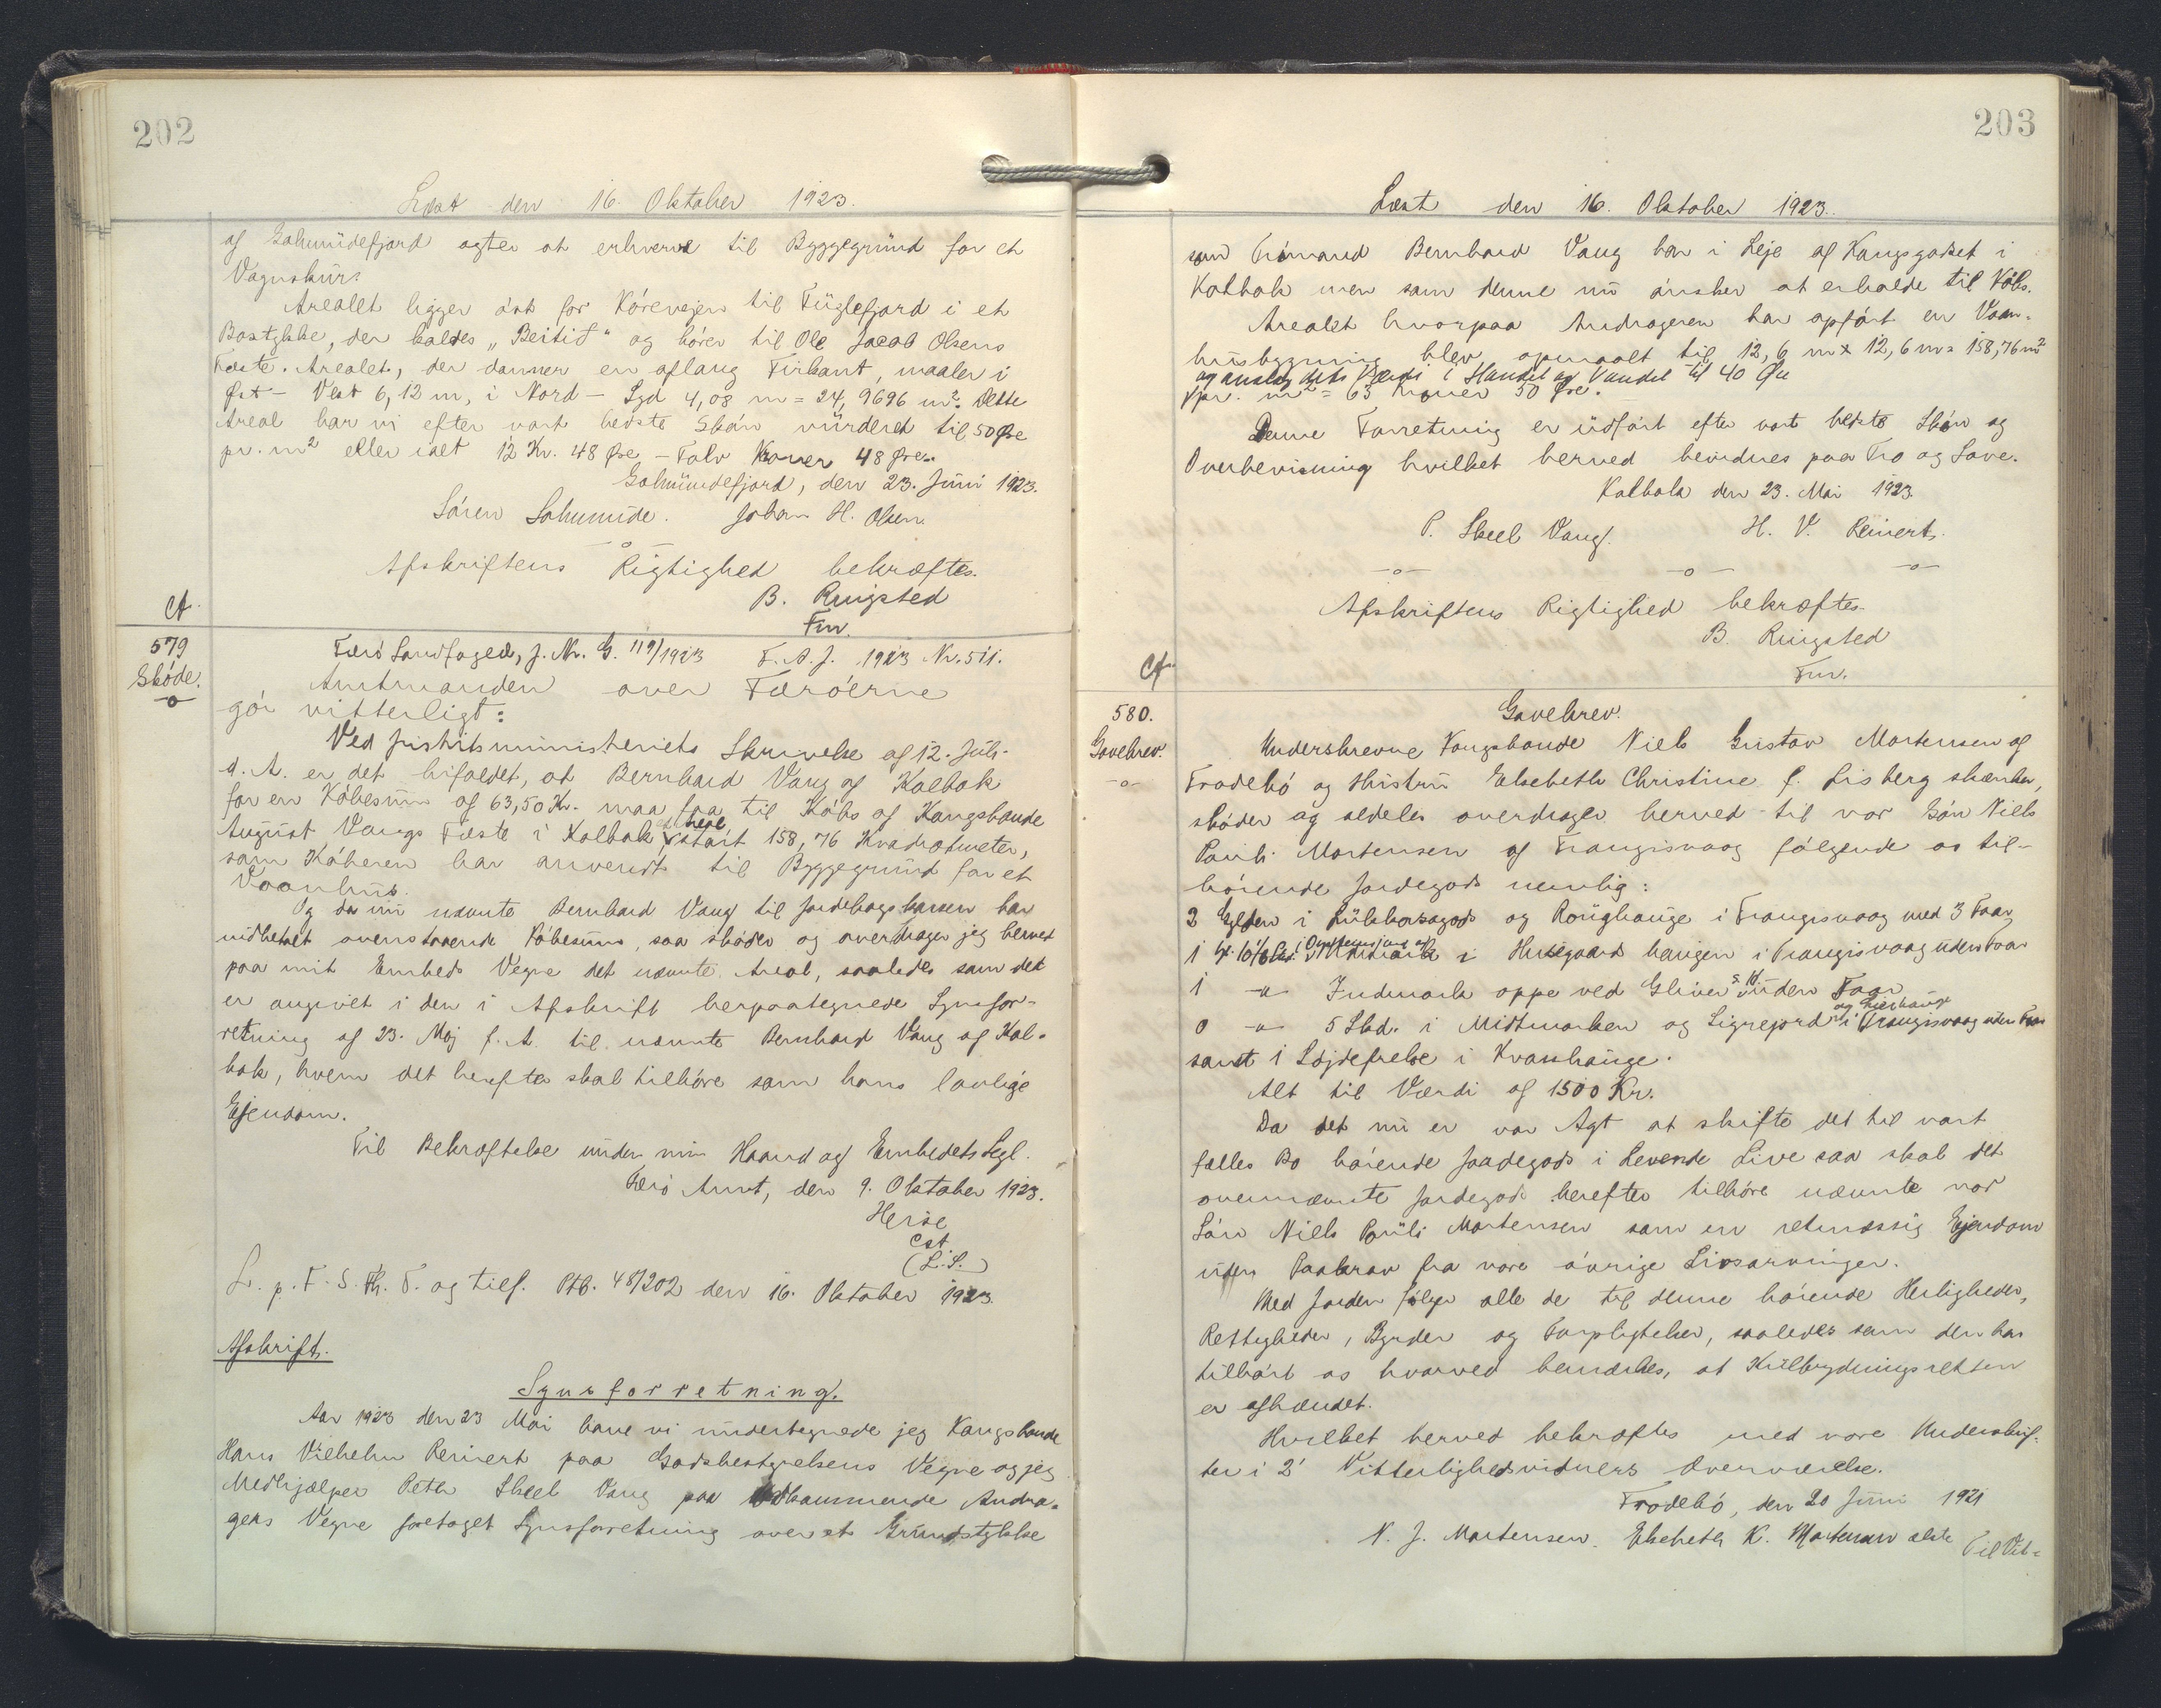 202
Læst den 16. Oktober 1923.
af Gøtumidefjord agter at erhverve til Byggegrund for et
Vognskur.
Arealet ligger øst for Kørevejen til Fuglefjord i et
Bøstykke, der kaldes „Beitið“ og hører til Ole Jacob Olsens
Fæste. Arealet, der danner en aflang Firkant, maaler i
Øst - Vest 6,12 m, i Nord - Syd 4,08 m = 24,9696 m². Dette
Areal har vi efter vort bedste Skøn vurderet til 50 Øre
pr. m² eller ialt 12 Kr. 48 Øre - Tolv Kroner 48 Øre.
den 23. Juni 1923.
Johan H. Olsen.
-o-
Afskriftens Rigtighed bekræftes.
B. Ringsted
Fm.
Ct.
579
Skøde.
-o-
Færø Landfoged, J. Nr. G. 119/1923 F. A. J. 1923 Nr. 511.
Amtmanden over Færøerne
gør vitterligt:
Ved Justitsministeriets Skrivelse af 12. Juli
d. A. er det bifaldet, at Bernhard Vang af Kalbak
for en Købesum af 63,50 Kr. maa faa til Købs af Kongsbonde
August Vangs Fæste i Kalbak et Areal stort 158,76 Kvadratmeter,
som Køberen har anvendt til Byggegrund for et
Vaanhus.
Og da nu nævnte Bernhard Vang til Jordebogskassen har
indbetalt ovenstaaende Købesum, saa skøder og overdrager jeg herved
paa mit Embeds Vegne det nævnte Areal, saaledes som det
er angivet i den i Afskrift herpaategnede Synsfor-
retning af 23. Maj f. A. til nævnte Bernhard Vang af Kal-
bak, hvem det herefter skal tilhøre som hans lovlige
Ejendom.
Til Bekræftelse under min Haand og Embedets Segl.
Færø Amt, den 9. Oktober 1923.
Heise
cst
(L.S.)
L. p. F. S. Th. T. og tilf. Ptb. 48/202 den 16. Oktober 1923.
Afskrift.
Synsforretning.
Aar 1923 den 23 Mai have vi undertegnede jeg Kongsbonde
Hans Vilhelm Reinert paa Godsbestyrelsens Vegne og jeg
Medhjælper Peter Skeel Vang paa Vedkommende Andra-
gers Vegne foretaget Synsforretning over et Grundstykke
203
Læst den 16. Oktober 1923.
som Trømand Bernhard Vang har i Leje af Kongsgodset i
Kalbak men som denne nu ønsker at erholde til Købs.
Arealet hvorpaa Andrageren har opført en Vaan-
husbygning blev opmaalt til 12,6 m x 12,6 m = 158,76 m²
og ansløg dets Værdi i Handel og Vandel til 40 Øre
pr. m² = 63 Kroner 50 Øre.
Denne Forretning er udført efter vort bedste Skøn og
Overbevisning hvilket herved bevidnes paa Tro og Love.
Kalbak den 23. Mai 1923.
P. Skeel Vang. H. V. Reinert.
-o- -o- -o-
Afskriftens Rigtighed bekræftes.
B. Ringsted
Fm.
Ct.
580.
Gavebrev.
-o-
Gavebrev.
Underskrevne Kongsbonde Niels Gustav Mortensen af
Frodebø og Hustru Elsebeth Christine f. Lisberg skænker,
skøder og aldeles overdrager herved til vor Søn Niels
Pauli Mortensen af Trangisvaag følgende os til-
hørende Jordegods nemlig:
3 Gylden i og i Trangisvaag med 3 Faar
1 i haugen i Trangisvaag uden Faar
1 -"- Indmark oppe ved uden Faar
0 -"- 5 Skd. i Midtmarken og i Trangisvaag uden Faar
samt 1 i
Alt til Værdi af 1500 Kr.
Da det nu er vor Agt at skifte det til vort
fælles Bo hørende Jordegods i Levende Live saa skal det
ovennævnte Jordegods herefter tilhøre nævnte vor
Søn Niels Pauli Mortensen som en retmæssig Ejendom
uden Paakrav fra vore øvrige Livsarvinger.
Med Jorden følger alle de til denne hørende Herligheder,
Rettigheder, Byrder og Forpligtelser, saaledes som den har
tilhørt os hvorved bemærkes, at Kulbrydningsretten
er afhændet.
Hvilket herved bekræftes med vore Underskrif-
ter i 2 Vitterlighedsvidners Overværelse.
Frodebø, den 20 Juni 1921
N. J. Mortensen. Elsebeth K. Mortensen Til Vit-